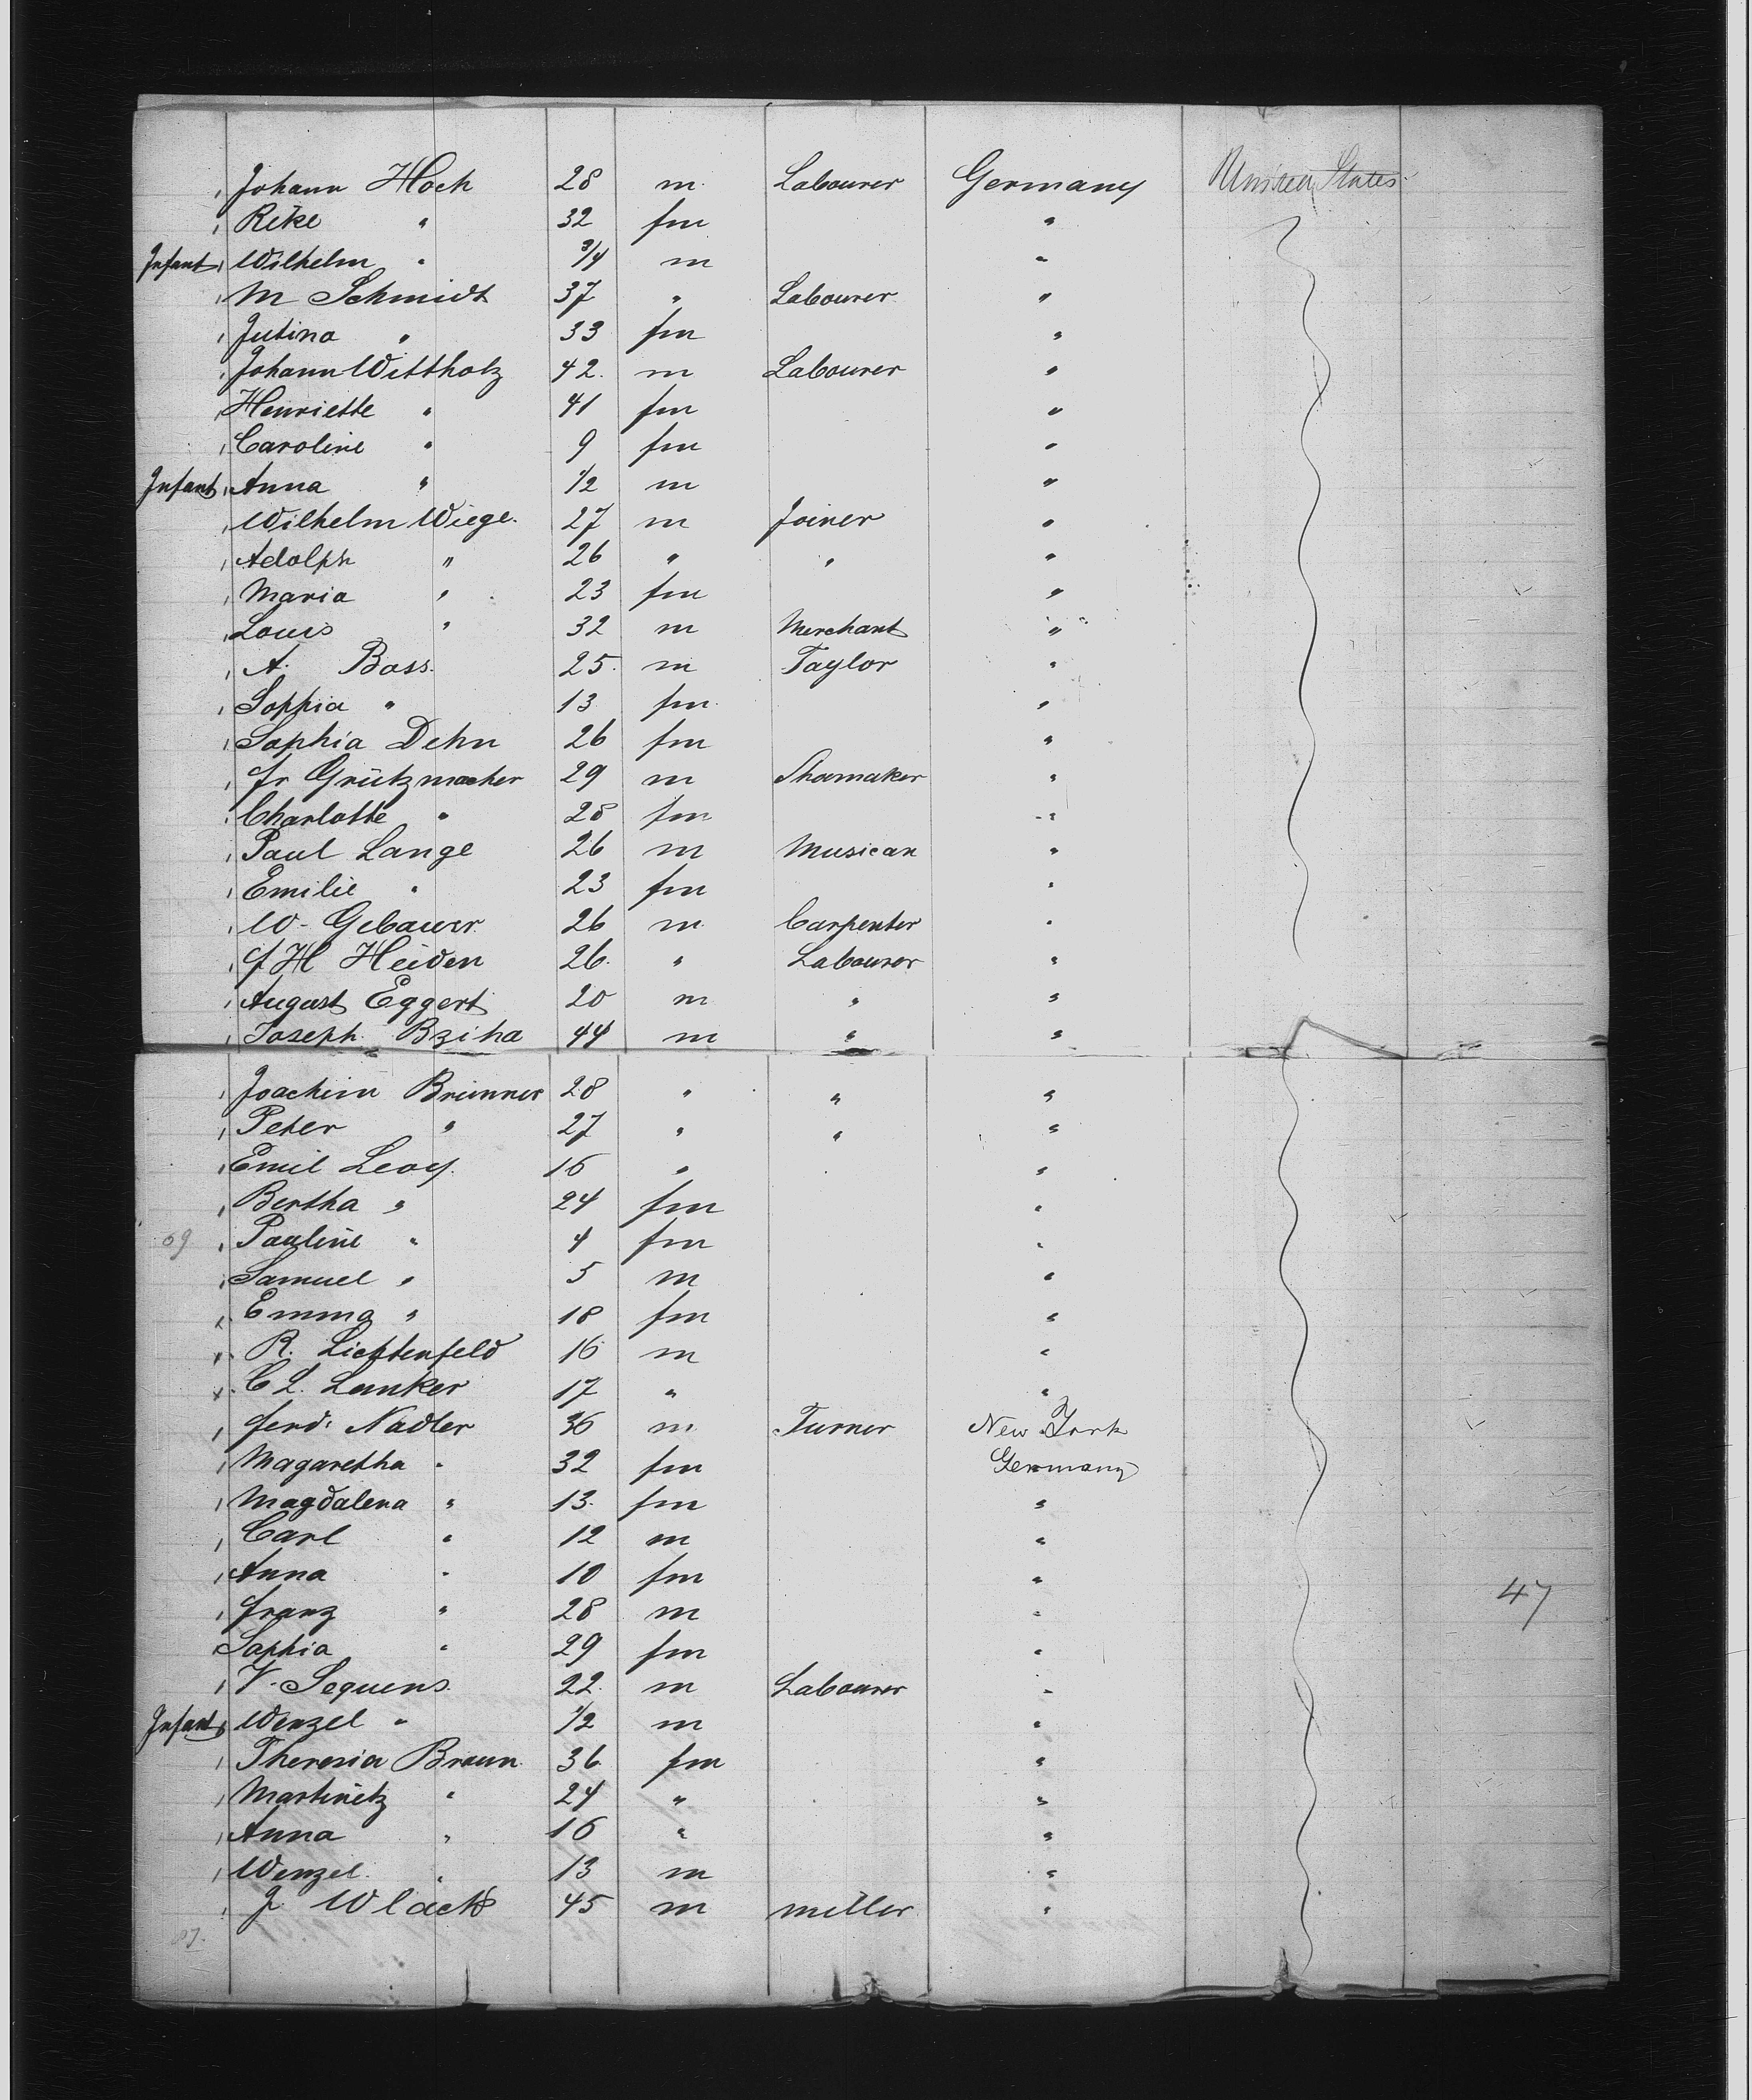 Johann Hoch 28 m. Labourer Germany United States
Rike " 32 fm "
Infant Wilhelm " 3/4 m "
M Schmidt 37 " Labourer "
Jutina " 33 fm "
Johann Wittholz 42. m Labourer "
Henriette " 41 fm "
Caroline " 9 fm "
Infant Anna " 1/2 m "
Wilhelm Wiege. 27 m Joiner "
Adolph " 26 " " "
Maria " 23 fm "
Louis " 32 m Merchant "
A. Bass. 25. m Taylor "
Sophia " 13 fm. "
Sophia Dehn 26 fm "
fr Grützmacher 29 m Shoemaker "
Charlotte " 28 fm "
Paul Lange 26 m Musican "
Emilie " 23 fm "
W. Gebauer. 26 m. Carpenter "
f H Heiden 26. " Labourer "
August Eggert 20 m " "
Joseph Bziha 44 m " "
Joachim Brunner 28 " " "
Peter " 27 " " "
Emil Levy. 16 " "
Bertha " 24 fm "
09 Pauline " 4 fm "
Samuel " 5 m "
Emma " 18 fm "
R. Lichtenfeld 16 m "
C L. Lanker 17 " "
ferd. Nadler 36 m Turner New York
Magaretha " 32 fm Germany
Magdalena " 13. fm "
Carl " 12 m "
Anna " 10 fm "
franz " 28 m " 47
Sophia " 29 fm "
V. Sequens. 22. m Labourer "
Infant Wenzel " 1/2 m "
Theresia Braun. 36 fm "
Martinetz " 24 " "
Anna " 16 " "
Wenzel. " 13 m "
J Wlack 45 m miller "